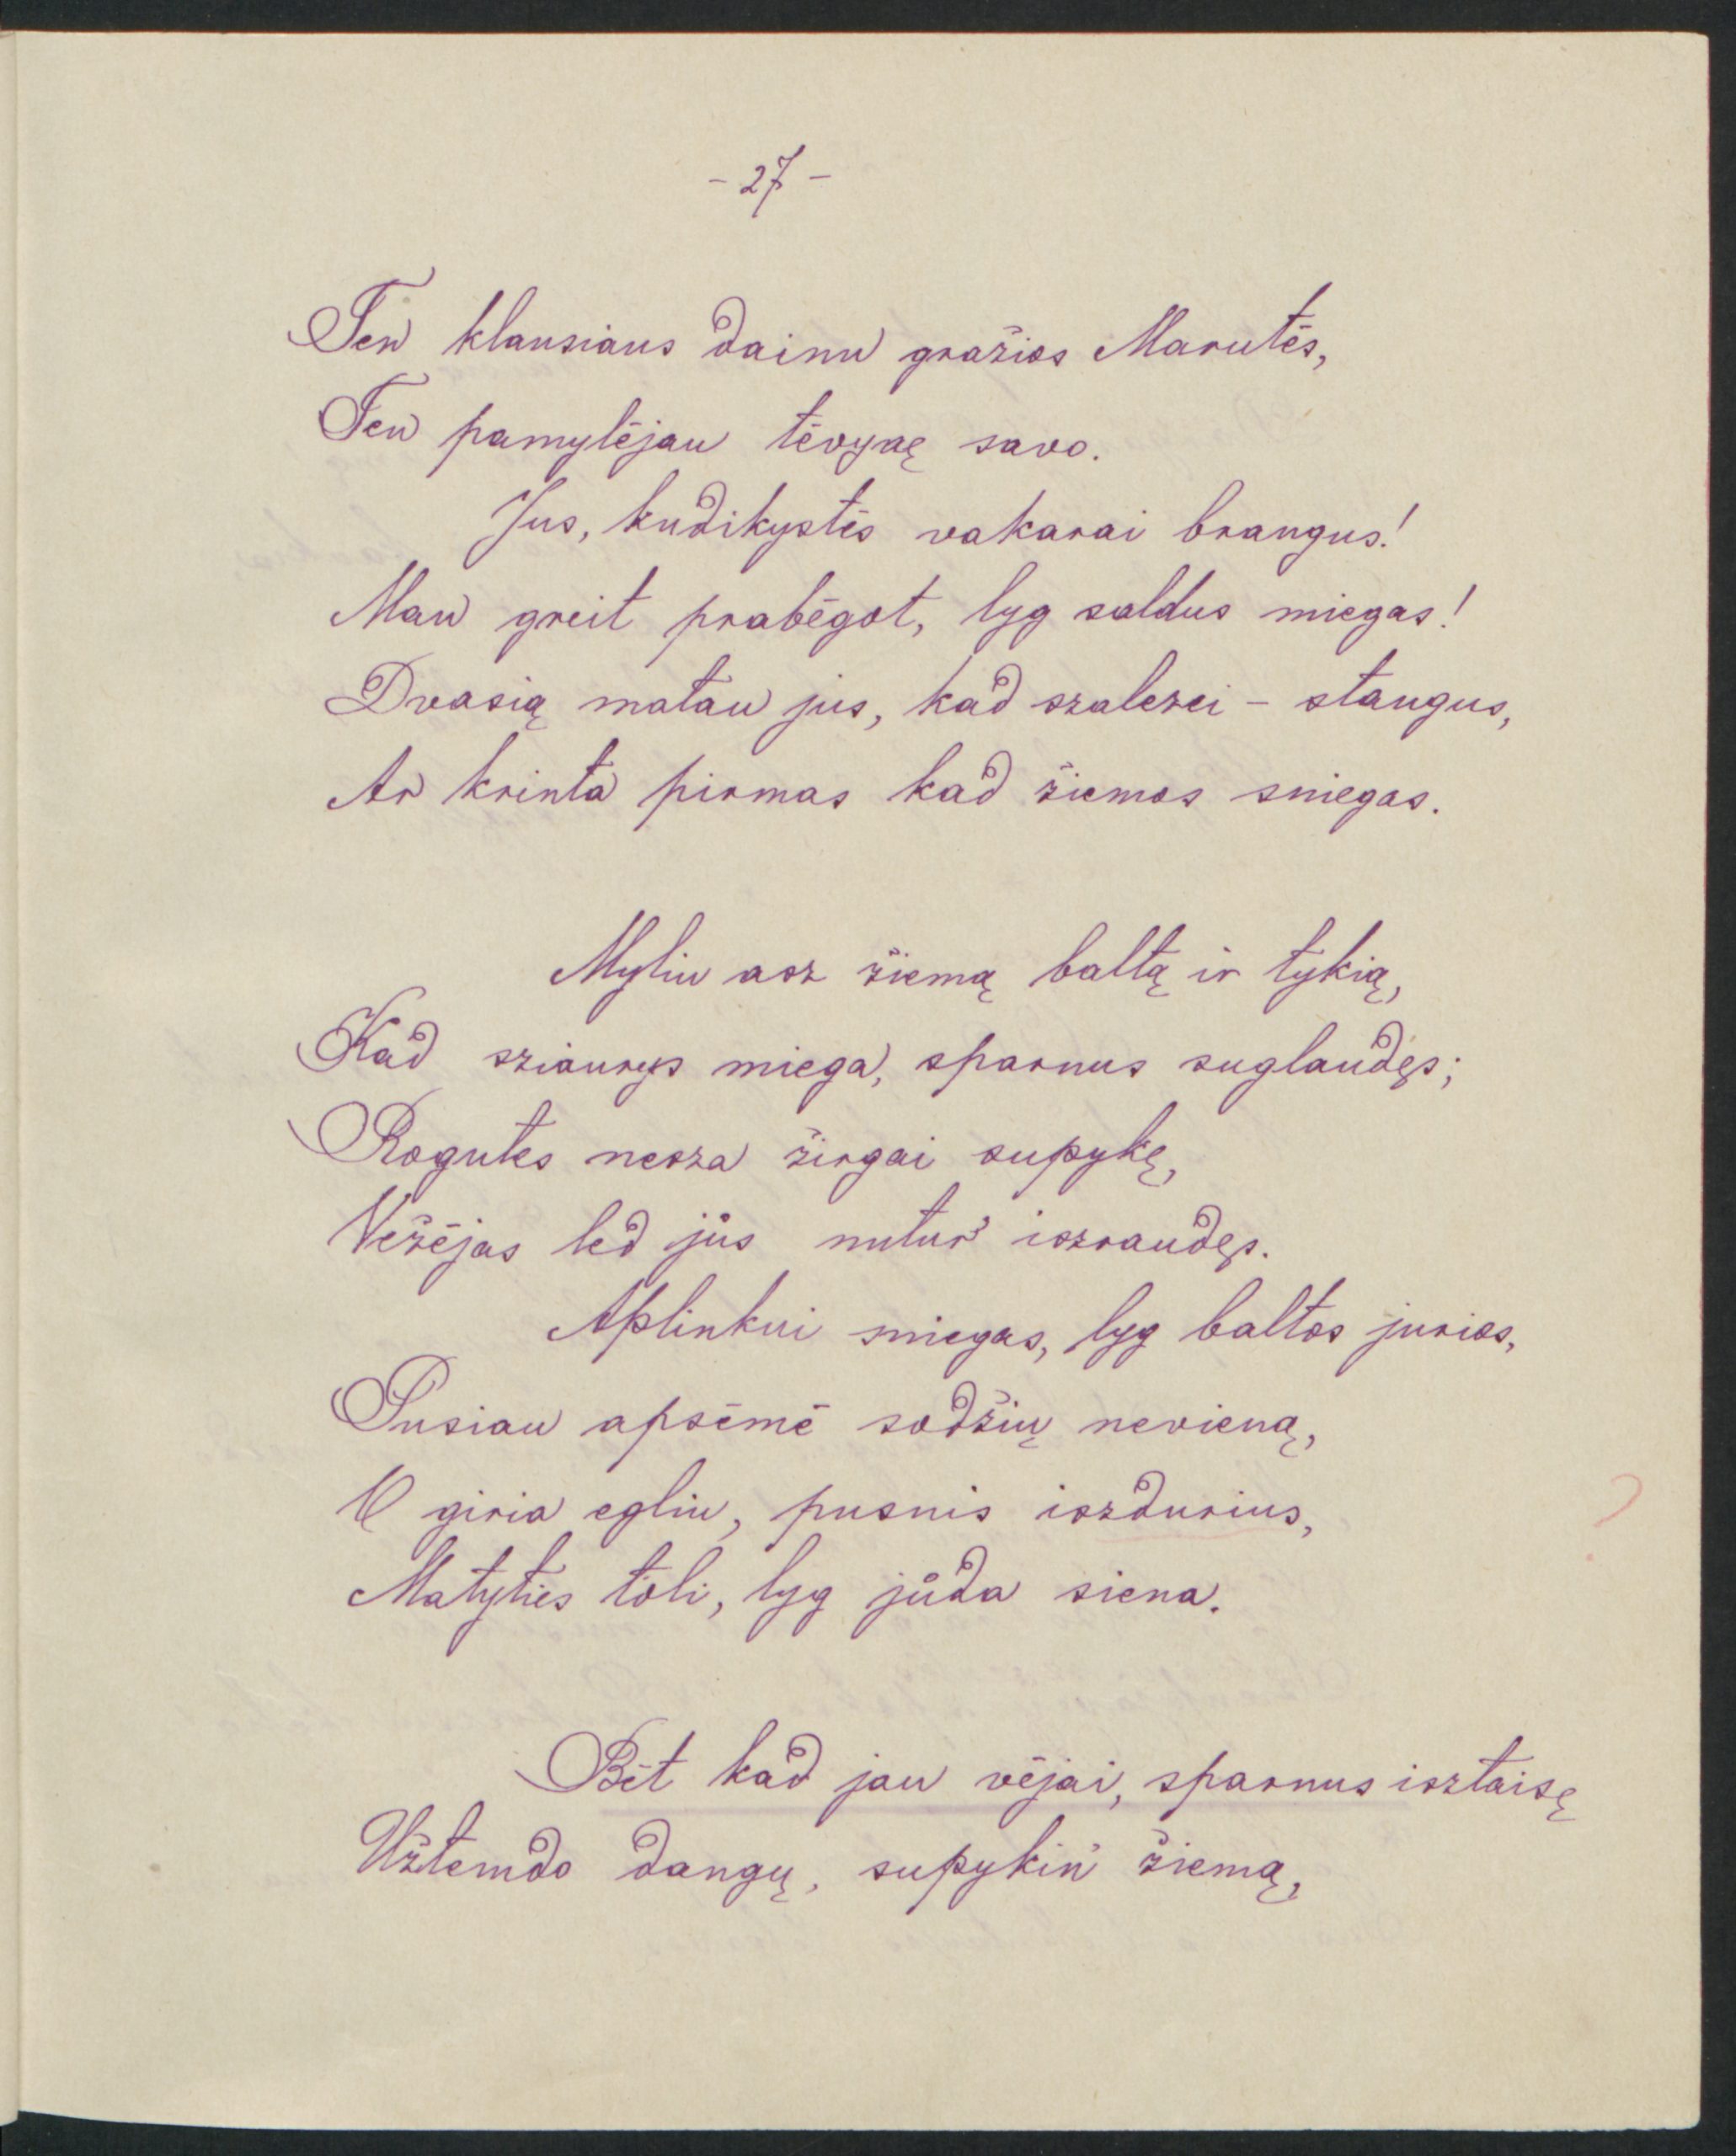 - 27 -
Ten klausiaus dainu gražios Marutės,
Ten pamylėjau tėvynę savo.
Jus, kudikystės vakarai brangus!
Man greit prabėgot, lyg saldus miegas!
Dvasią matau jus, kad szalczei - stangus,
Ar krinta pirmas kad žiemos sniegas.
Myliu asz žiemą baltą ir tykią,
Kad sziaurys miega, sparnus suglaudęs;
Rogutes nesza žirgai supykę,
Vežėjas led jůs nutur' iszraudęs.
Aplinkui sniegas, lyg baltos jurios,
Pusiau apsėmė sodžių nevieną,
O giria egliu, pusnis iszdurius,
Matyties toli, lyg jůda siena.
Bet kad jau vėjai, sparnus isztaisę
Užtemdo dangų, supykin' žiemą,
?